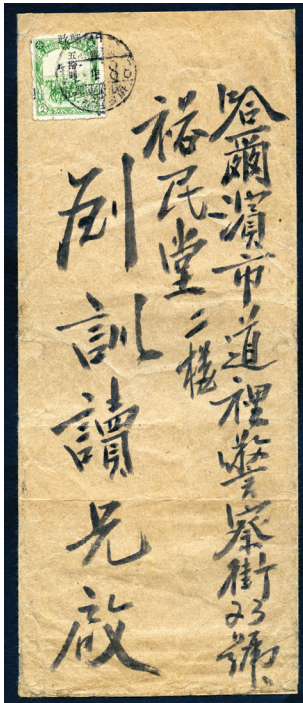 哈爾濱市道裡警察街23號
裕民堂二樓
刘訓讀兄啟